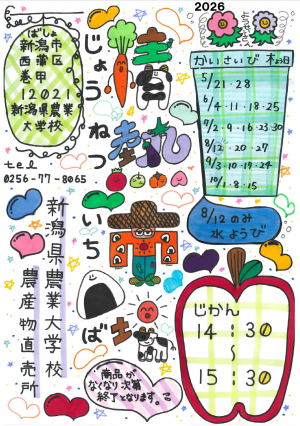 2026
ばしょ
新潟市
西蒲区
巻甲
12021
新潟県農業
大学校
tel
0256-77-8065
じょうねついちば
かいさいび 木曜日
5/21・28
6/4・11・18・25
7/2・9・16・23・30
8/12・20・27
9/3・10・17・24
10/1・8・15
8/12のみ
水ようび
新潟県農業大学校
農産物直売所
じかん
14:30
〜
15:30
商品が
なくなり次第
終了となります。